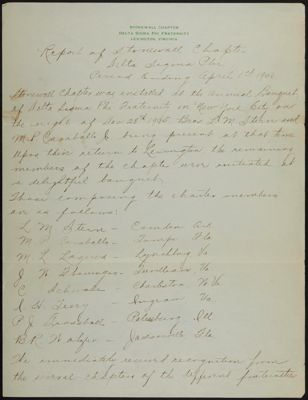 STONEWALL CHAPTER
DELTA SIGMA PHI FRATERNITY
LEXINGTON, VIRGINIA
Report of Stonewall Chapter
Delta Sigma Phi
Period Ending April 1st 190
Stonewall Chapter was installed at the Annual Banquet
of Delta Sigma Phi Fraternity in New York City on
the night of Nov 28th 1905 Bros L M Stern and
M P Caraballo Jr being present at that time
Upon their return to Lexington the remaining
members of the chapter were initiated at
a delightful banquet
Those composing the charter members
are as follows:
L M Stern - Camden Ark
M P Caraballo - Tampa Fla
M L - Lynchburg Va
J W - Va
C - Charleston W Va
I H Terry - Ingram Va
P J - Petersburg Ill
B R - Jacksonville Fla
The immediately received recognition from
the several chapters of the different fraternities